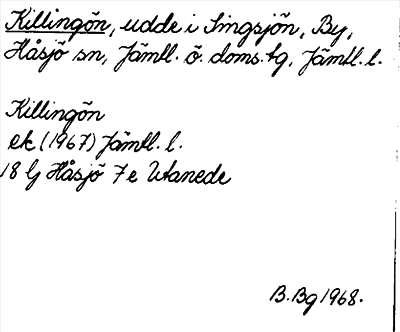 Killingön, udde i Singsjön, By,
Håsjö sn, Jämtl. ö. doms.tg, Jämtl. l.
Killingön
ek (1967) Jämtl. l.
18 G Håsjö 7 e Utanede
B. Bg 1968.